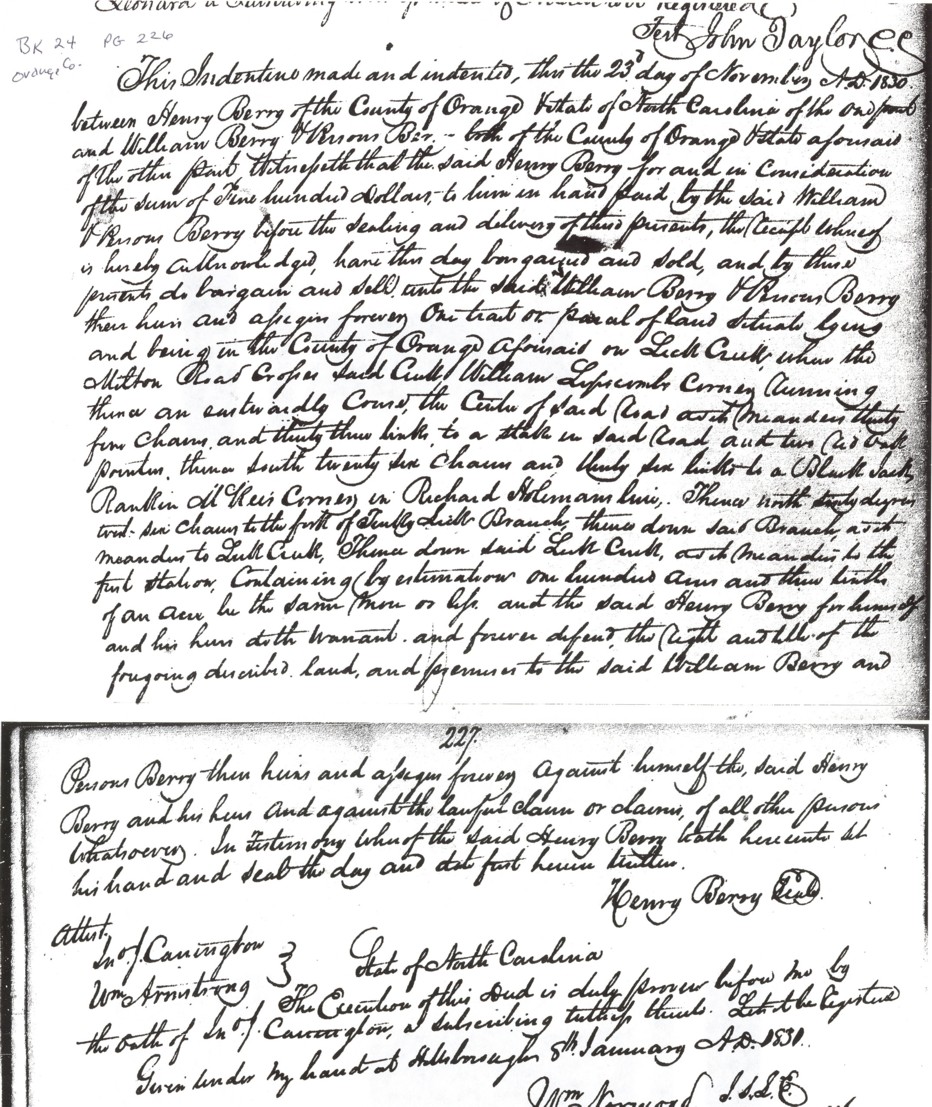 Test John Taylor CC
BK 24 PG 226
Orange Co.
This Indenture made and indented, this the 23d day of November A.D. 1830
between Henry Berry of the County of Orange & State of North Carolina of the one part
and William Berry & Persons Ber - both of the County of Orange & State aforesaid
of the other part, Witnesseth that the said Henry Berry for and in Consideration
of the sum of Five hundred Dollars, to him in hand paid by the said William
& Persons Berry before the sealing and delivery of these presents, the receipt whereof
is hereby acknowledged, have this day bargained and sold, and by these
presents do bargain and sell, unto the said William Berry & Persons Berry
their heirs and assigns forever, One tract or parcel of land situate lying
and being in the County of Orange aforesaid on Lick Creek, where the
Milton Road Crosses said Creek, William Lipscombs Corner, running
thence an eastwardly Course, the Centre of said road as it meanders thirty
five chains, and thirty three links, to a stake in said road, and two red oak
pointers, thence South twenty six chains and thirty six links to a Black Jack,
Rankin McKees Corner, in Richard Holemans line, Thence north degrees
west six Chains to the fork of Lick Branch, thence down said Branch, as it
meanders to Lick Creek, Thence down said Lick Creek, as it meanders to the
first station, Containing by estimation one hundred acres and three tenths
of an acre, be the same more or less. and the said Henry Berry for himself
and his heirs doth warrant. and forever defend, the right and title of the
foregoing described land, and premises to the said William Berry and
227
Persons Berry their heirs and assigns forever, Against himself the, said Henry
Berry and his heirs And against the lawful claim or claims, of all other persons
Whatsoever. In Testimony whereof the said Henry Berry hath hereunto set
his hand and seal the day and date first herein written.
Henry Berry Seal
Attest.
Jno. J. Carrington
Wm Armstrong
State of North Carolina
The Execution of this Deed is duly proven before me by
the oath of Jno. J. Carrington, a subscribing witness thereto. Let it be Registered
Given under my hand at Hillsborough 8th January A.D. 1831.
Wm Norwood J.S.L.E.